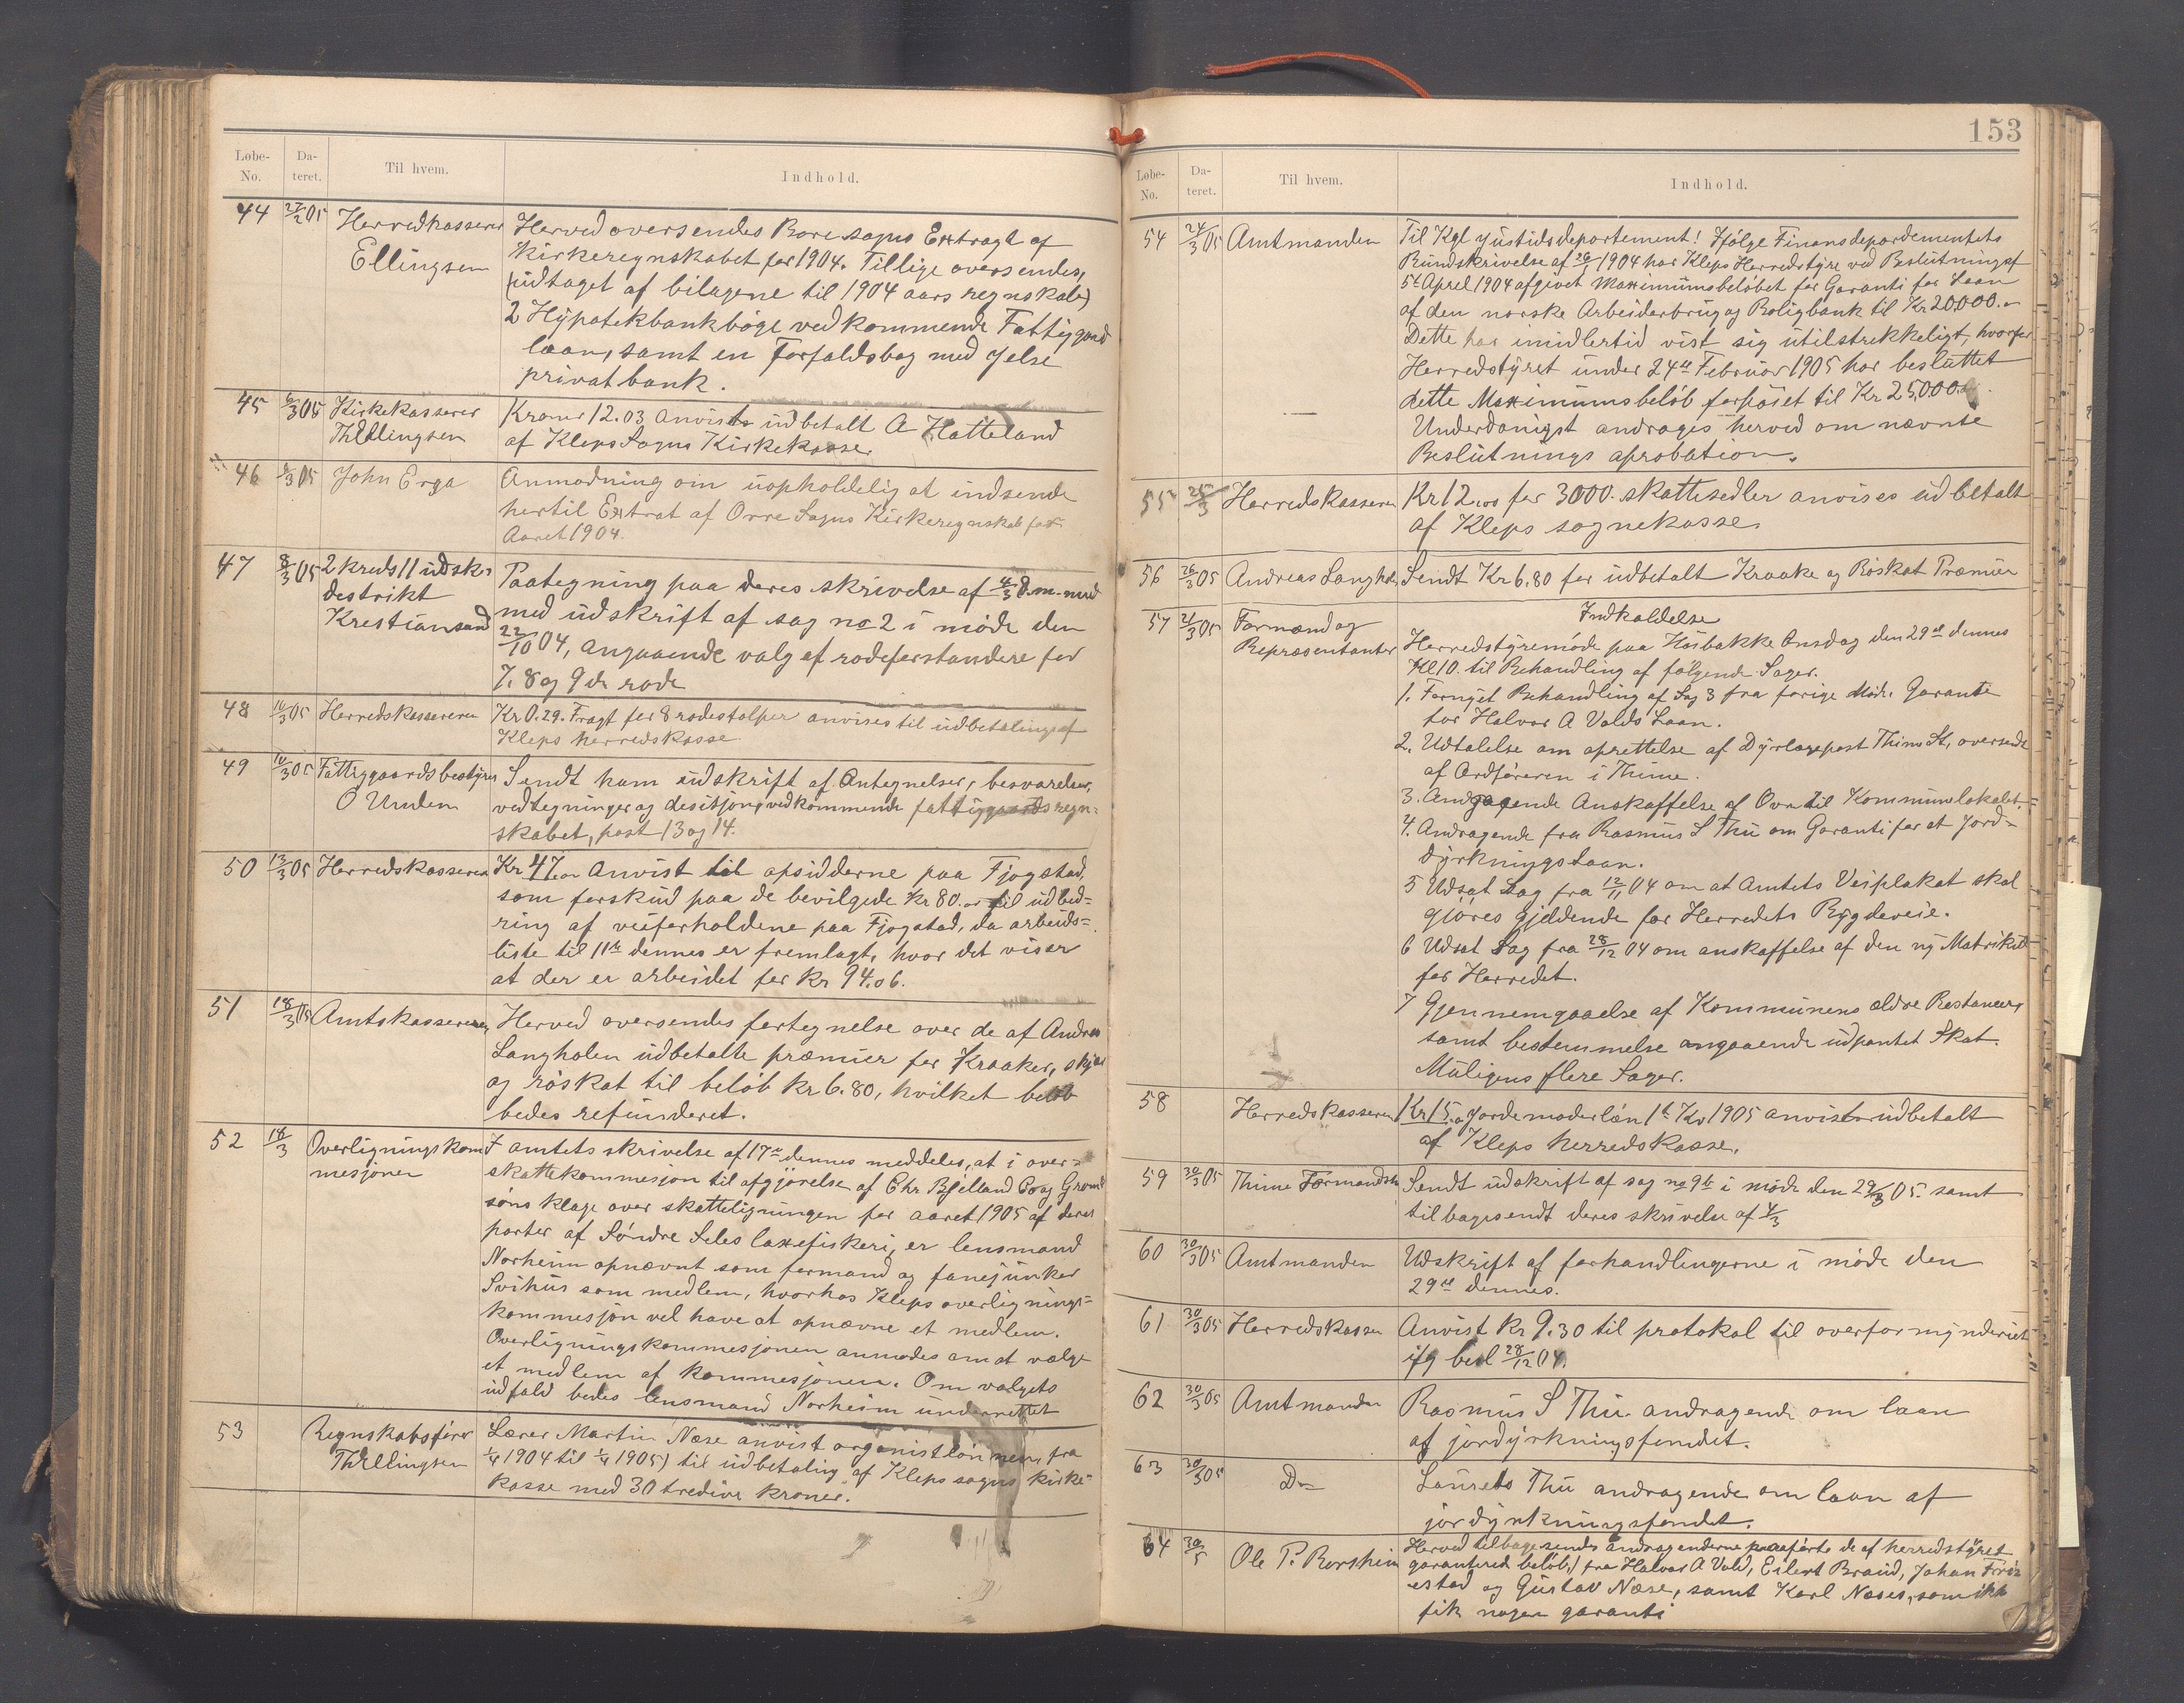 Løbe-No. Dateret. Til hvem. Indhold.
44 27/2 05 Herredkasserer Ellingsen
Herved oversendes Bore sogns Extragt af
Kirkeregnskabet for 1904. Tillige oversendes,
(udtaget af bilagene til 1904 aars regnskab)
2 Hypotekbankbøge vedkommende Fattiggaard
laan, samt en Forfaldsbog med
privatbank.
45 6/3 05 Kirkekasserer Th Ellingsen
Kroner 12.03 anvists udbetalt A Hatteland
af Kleps Sogns Kirkekasse.
46 8/3 05 John Erga
Anmodning om uopholdelig at indsende
hertil Extrat af Orre Sogns Kirkeregnskab for
Aaret 1904.
47 8/3 05 2 kreds 11 udskr destrikt Krestiansand
Paategning paa deres skrivelse af 4/3 d.m. med
med udskrift af sag no 2 i møde den
22/10 04, angaaende valg af rodeforstandere for
7. 8 og 9de rode
48 10/3 05 Herredskassereren
Kr 0.29. Fragt for 8 rodestolper anvises til udbetaling af
Kleps herredskasse.
49 10/3 05 Fattiggaardsbestyrer O Undem
Sendt ham udskrift af Antegnelser, besvarelser,
vedtegninger og desisjon, vedkommende fattiggaardsregn-
skabet, post 13 og 14.
50 13/3 05 Herredskassereren
Kr 47.00 Anvist til opsidderne paa Fjogstad,
som forskud paa de bevilgede Kr 80.00 til udbed-
ring af veiforholdene paa Fjogstad, da arbeids-
liste til 11te dennes er fremlagt, hvor det viser
at der er arbeidet for Kr 94.06.
51 18/3 05 Amtskassereren
Herved oversendes fortegnelse over de af Andreas
Langholen udbetalte præmier for Kraaker,
og røskat til beløb Kr 6.80, hvilket beløb
bedes refunderet.
52 18/3 Overligningskommesjonen
I amtets skrivelse af 17de dennes meddeles, at i over-
skattekommesjon til afgjørelse af Chr Bjelland Co og
søns klage over skatteligningen for aaret 1905 af deres
parter af Søndre Seles laxefiskeri, er lensmand
Norheim opnævnt som formand og fanejunker
Svihus som medlem, hvorhos Kleps overlignings-
kommesjon vel have at opnævne et medlem.
Overligningskommesjonen anmodes om at vælge
et medlem af kommesjonen. Om valgets
udfald bedes lensmand Norheim underrettet
53 Regnskabsfører Th Ellingsen
Lærer Martin Næse anvist organistlønnen, fra
1/4 1904 til 1/4 1905) til udbetaling af Kleps sogns kirke-
kasse med 30 tredive kroner.
153
Løbe-No. Dateret. Til hvem. Indhold.
54 24/3 05 Amtmanden
Til Kgl Justidsdepartement! Ifølge Finansdepardementets
Rundskrivelse af 1904 har Kleps Herredstyre ved Beslutning af
5te April 1904 afgivet Maximumsbeløbet for Garanti for Laan
af den norske Arbeiderbrug og Boligbank til Kr 20,000.00
Dette har imidlertid vist sig utilstrekkeligt, hvorfor
Herredstyret under 24de Februar 1905 har besluttet
dette Maximumsbeløb forhøiet til Kr 25,000.
Underdanigst andrages herved om nævnte
Beslutnings aprobation.
55 25/3 Herredskasseren
Kr 12.00 for 3000. skattesedler anvises udbetalt
af Kleps sognekasse.
56 26/3 05 Andreas Langholen
Sendt Kr 6.80 for udbetalt Kraake og Røskat Præmier
57 21/3 05 Formænd og Repræsentanter
Indkaldelse
Herredstyremøde paa Husbakke Onsdag den 29de dennes
Kl 10. til Behandling af følgende Sager.
1. Fornyet Behandling af Sag 3 fra forige Møde. Garanti
for Halvor A Valds Laan.
2. Udtalelse om oprettelse af Dyrlægepost Thime St, oversendt
af Ordføreren i Thime.
3. Angaaende Anskaffelse af Ovn til Kommunelokalet.
4. Andragende fra Rasmus S Thu om Garanti for et Jord-
dyrkningslaan.
5 Udsat Sag fra 12/11 04 om at Amtets Veiplakat skal
gjøres gjeldende for Herredets Bygdeveie.
6 Udsat Sag fra 28/12 04 om anskaffelse af den ny Matrikul
for Herredet.
7 Gjennemgaaelse af Kommunens ældre Restancer,
samt bestemmelse angaaende udpantet Skat.
Muligens flere Sager.
58 Herredskasseren
Kr 15.00 Jordemoderløn 1te Kv 1905 anvises udbetalt
af Kleps herredskasse.
59 30/3 05 Thime Formandsk
Sendt udskrift af sag no 9 i møde den 29/3 05. samt
tilbagesendt deres skrivelse af
60 30/3 05 Amtmanden
Udskrift af forhandlingerne i møde den
29de dennes.
61 30/3 05 Herredskassen
Anvist Kr 9.30 til protokol til overformynderiet
ifg besl 28/12 04.
62 30/3 05 Amtmanden
Rasmus S Thu. andragende om laan
af jordyrkningsfondet.
63 30/3 05 Do
Laurets Thu andragende om laan af
jordyrkningsfondet.
64 30/5 Ole P. Borsheim
Herved tilbagesendes andragenderne paaførte de af herredstyret
garantered beløb,) fra Halvor A Vald, Eilert Braud, Johan
og Gustav Næse, samt Karl Næses, som ikke
fik nogen garanti